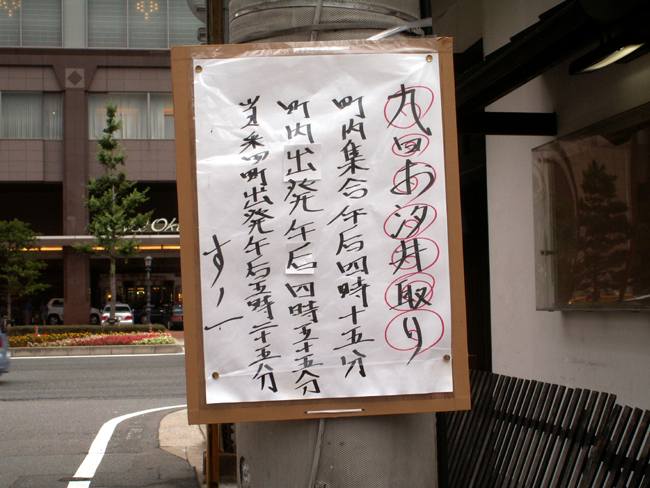 九日お汐井取り
町内集合午后四時十五分
町内出発午后四時五十五分
当番町出発午后五時二十五分
すノ一
Oku